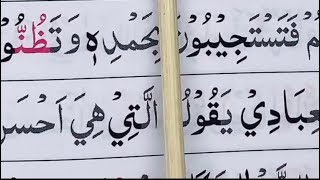 ُمْ فَتَسْتَجِيْبُوْنَ بِحَمْدِهٖ وَتَظُنُّو
عِبَادِيْ يَقُوْلُ الَّتِيْ هِيَ اَحْسَن